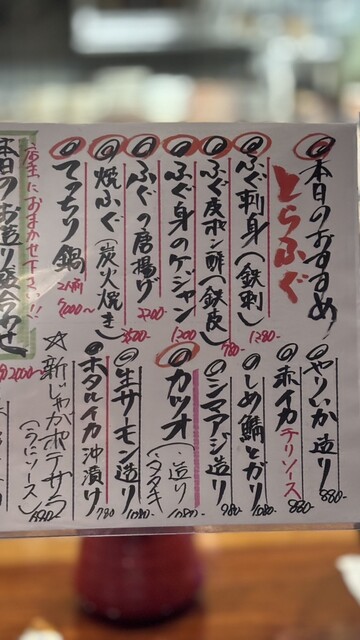 本日のおすすめ!
とらふぐ
ふぐ刺身(鉄刺) 1280-
ふぐ皮ポン酢(鉄皮) 780-
ふぐ身のケジャン 1200
ふぐの唐揚げ 2200-
焼ふぐ(炭火焼き) 2500-
てっちり鍋 2人前 7000〜
店主におまかせ下さい!!
本日のお造り盛合わせ
2000〜
やりいか造り 880-
赤イカチリソース 880-
しめ鯖とガリ 1080-
シマアジ造り 980-
カツオ(造り タタキ) 1080-
生サーモン造り 1080-
ホタルイカ沖漬け 780
☆新じゃがポテサラ
(うにソース)